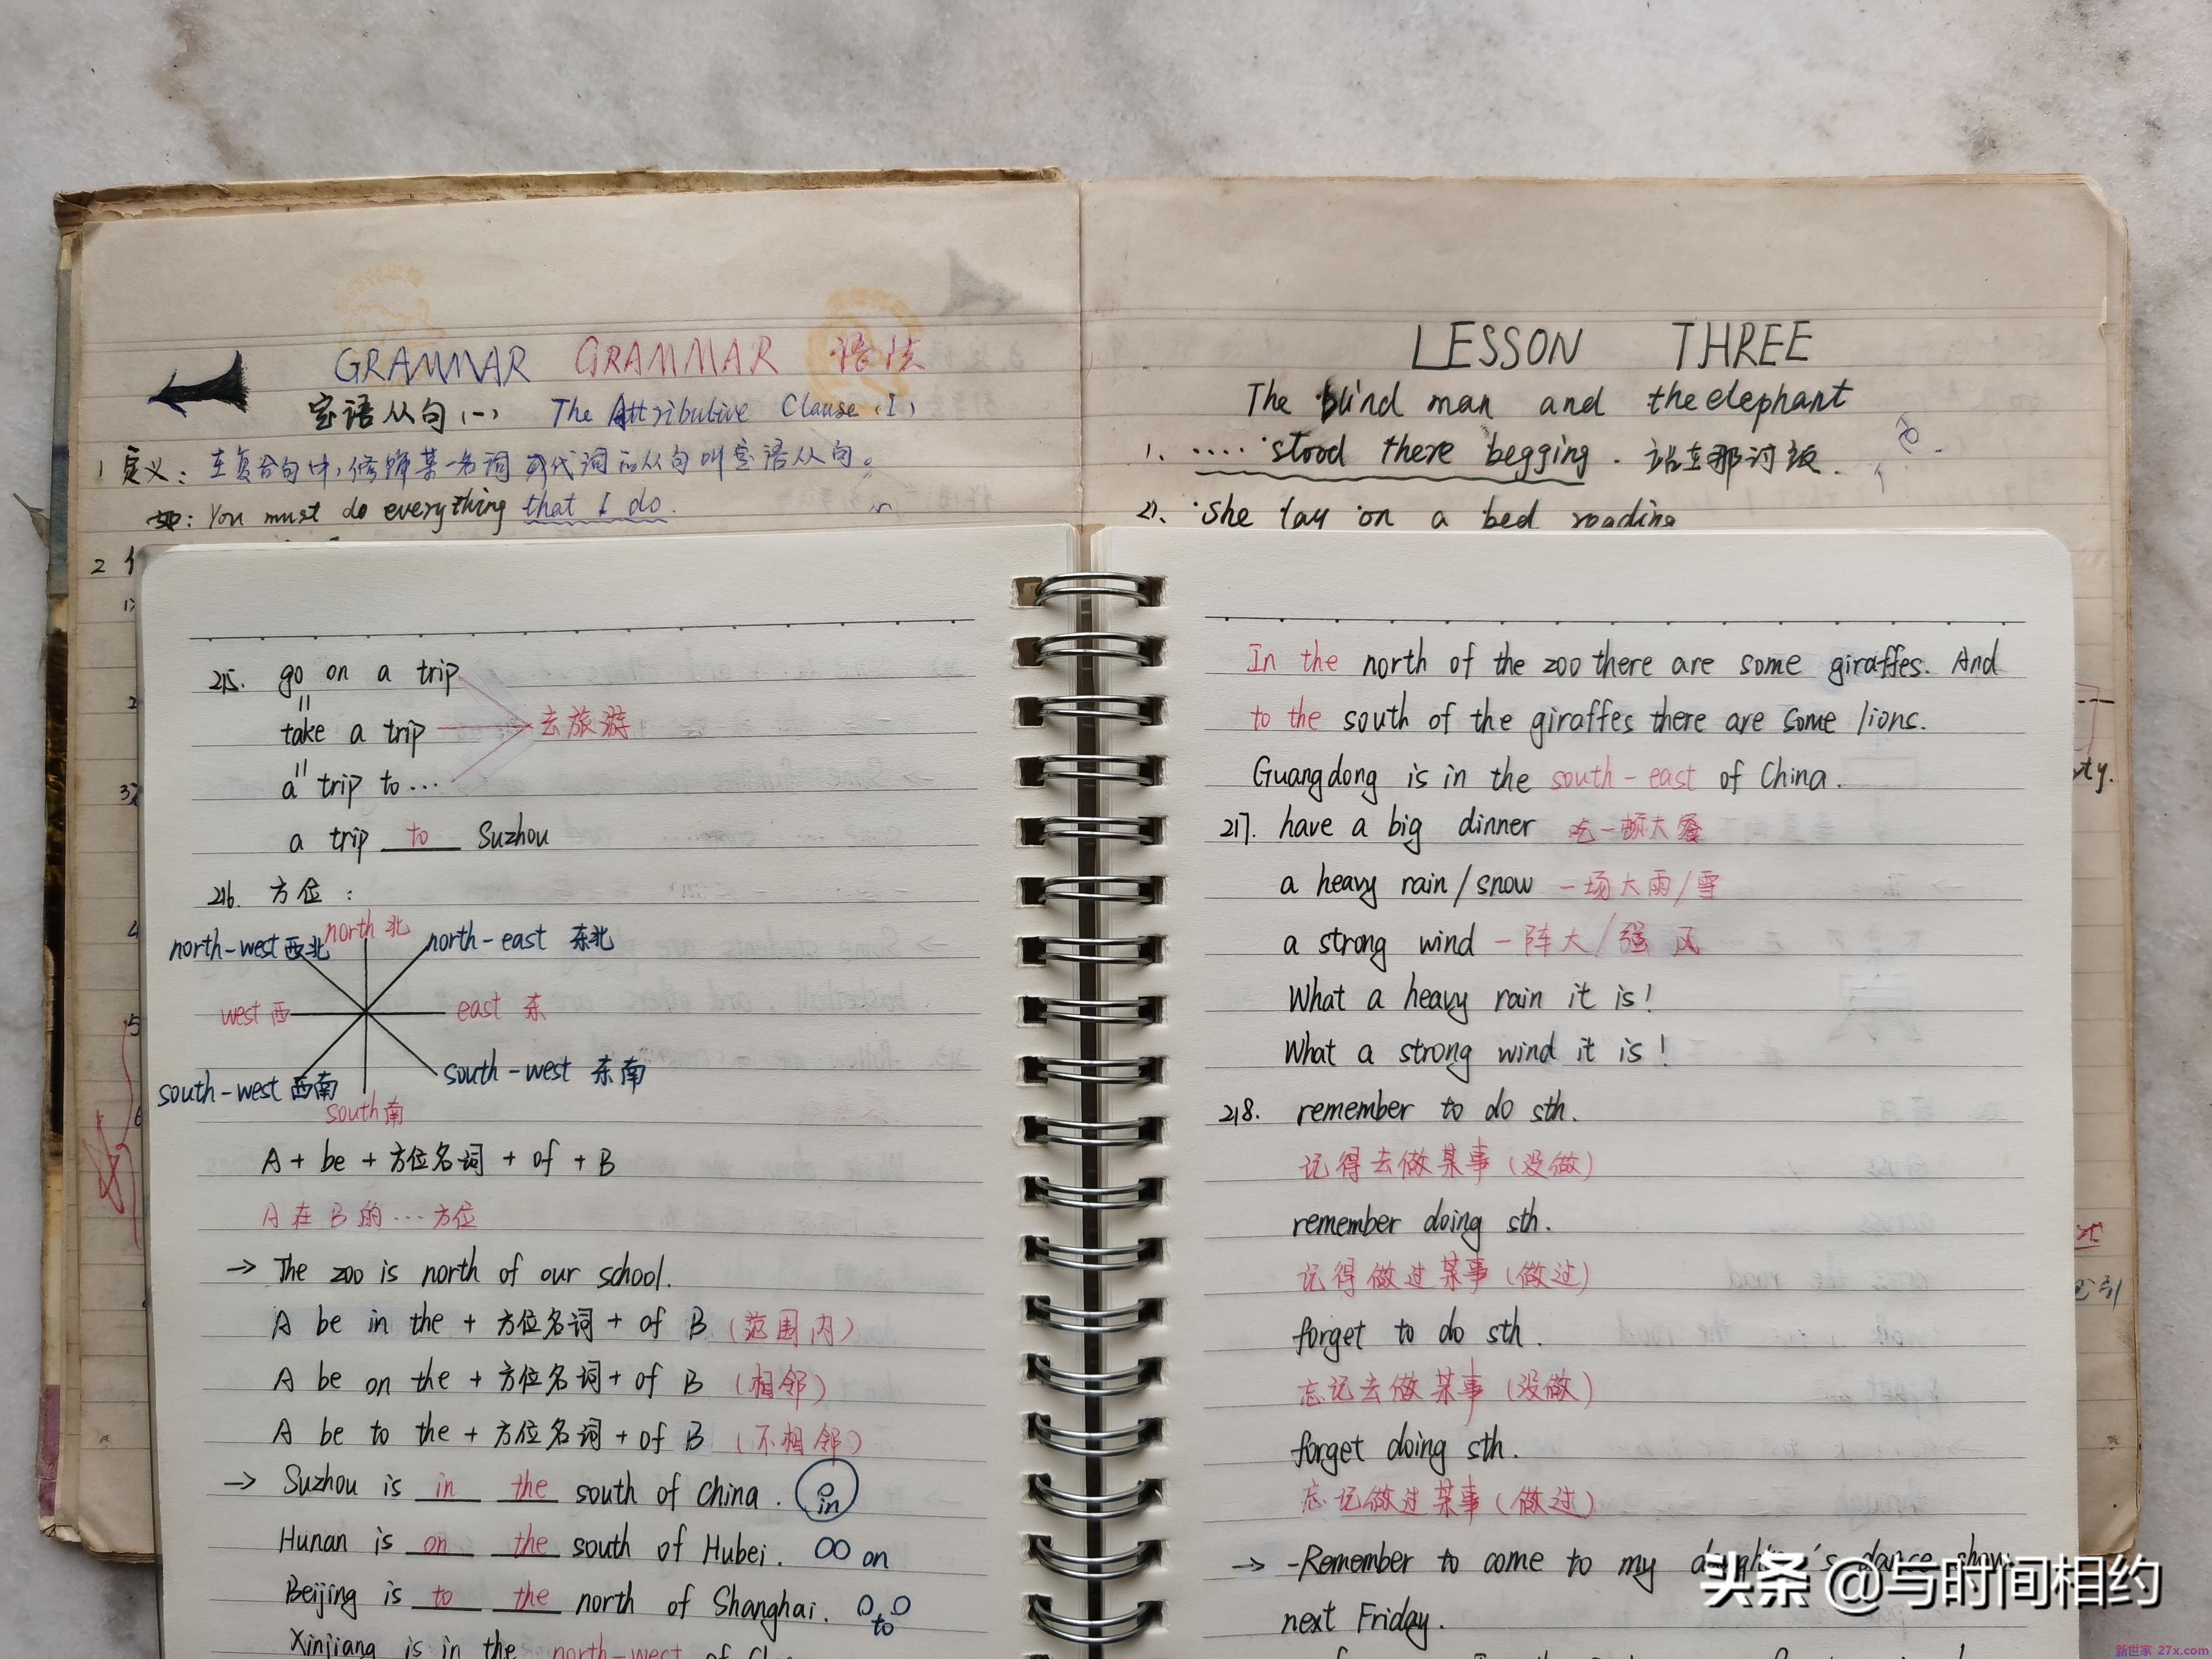 GRAMMAR GRAMMAR 语法
定语从句(一) The Attributive Clause (I)
1 定义：在复合句中，修饰某一名词或代词的从句叫定语从句。
如: You must do everything that I do.
2
LESSON THREE
The blind man and the elephant
1、..... stood there begging. 站在那讨饭.
2、She lay on a bed reading
215. go on a trip
=
take a trip 去旅游
=
a trip to...
a trip to Suzhou
216. 方位：
north 北
north-west 西北 north-east 东北
west 西 east 东
south-west 西南 south-west 东南
south 南
A + be + 方位名词 + of + B
A 在 B 的...方位
→ The zoo is north of our school.
A be in the + 方位名词 + of B (范围内)
A be on the + 方位名词 + of B (相邻)
A be to the + 方位名词 + of B (不相邻)
→ Suzhou is in the south of China. in
Hunan is on the south of Hubei. on
Beijing is to the north of Shanghai. to
Xinjiang is in the north-west of
In the north of the zoo there are some giraffes. And
to the south of the giraffes there are some lions.
Guangdong is in the south-east of China.
217. have a big dinner 吃一顿大餐
a heavy rain/snow 一场大雨/雪
a strong wind 一阵大/强风
What a heavy rain it is!
What a strong wind it is!
218. remember to do sth.
记得去做某事(没做)
remember doing sth.
记得做过某事(做过)
forget to do sth.
忘记去做某事(没做)
forget doing sth.
忘记做过某事(做过)
→ -Remember to come to my daughter's dance show
next Friday.
头条 @与时间相约
新世家 27x.com